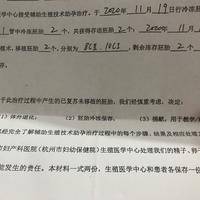 医学中心接受辅助生殖技术助孕治疗。于 2020 年 11 月 19 日行冷冻胚
管中冷冻胚胎 2 个,共获存胚胎 2 个, 2020年11月
技术,移植胚胎 2 个,分别为 8CⅡ, 10CⅠ ,剩余库存胚胎 2 个
于此治疗过程中产生的已复苏未移植的胚胎,我们经慎重考虑,决定:
(2) 胚胎冷冻保存。 (3) 捐献,用于教学/
已经完全了解辅助生殖技术助孕治疗过程中的每个步骤、结果及相应处理
妇产科医院(杭州市妇幼保健院)生殖医学中心处理我们的精子、卵子
能发生的责任。本材料一式两份,生殖医学中心和患者各保存一份